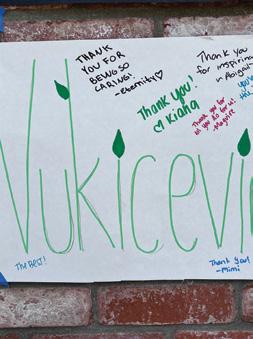 THANK
YOU FOR
BEING SO
CARING!
-eternity♡
Thank you
for inspiring
Abigail
Thank You!
♡ Kiana
Thank you for
all you do for us!
-Maguire
Vukicevi
The Best!
Thank You!
-Mimi